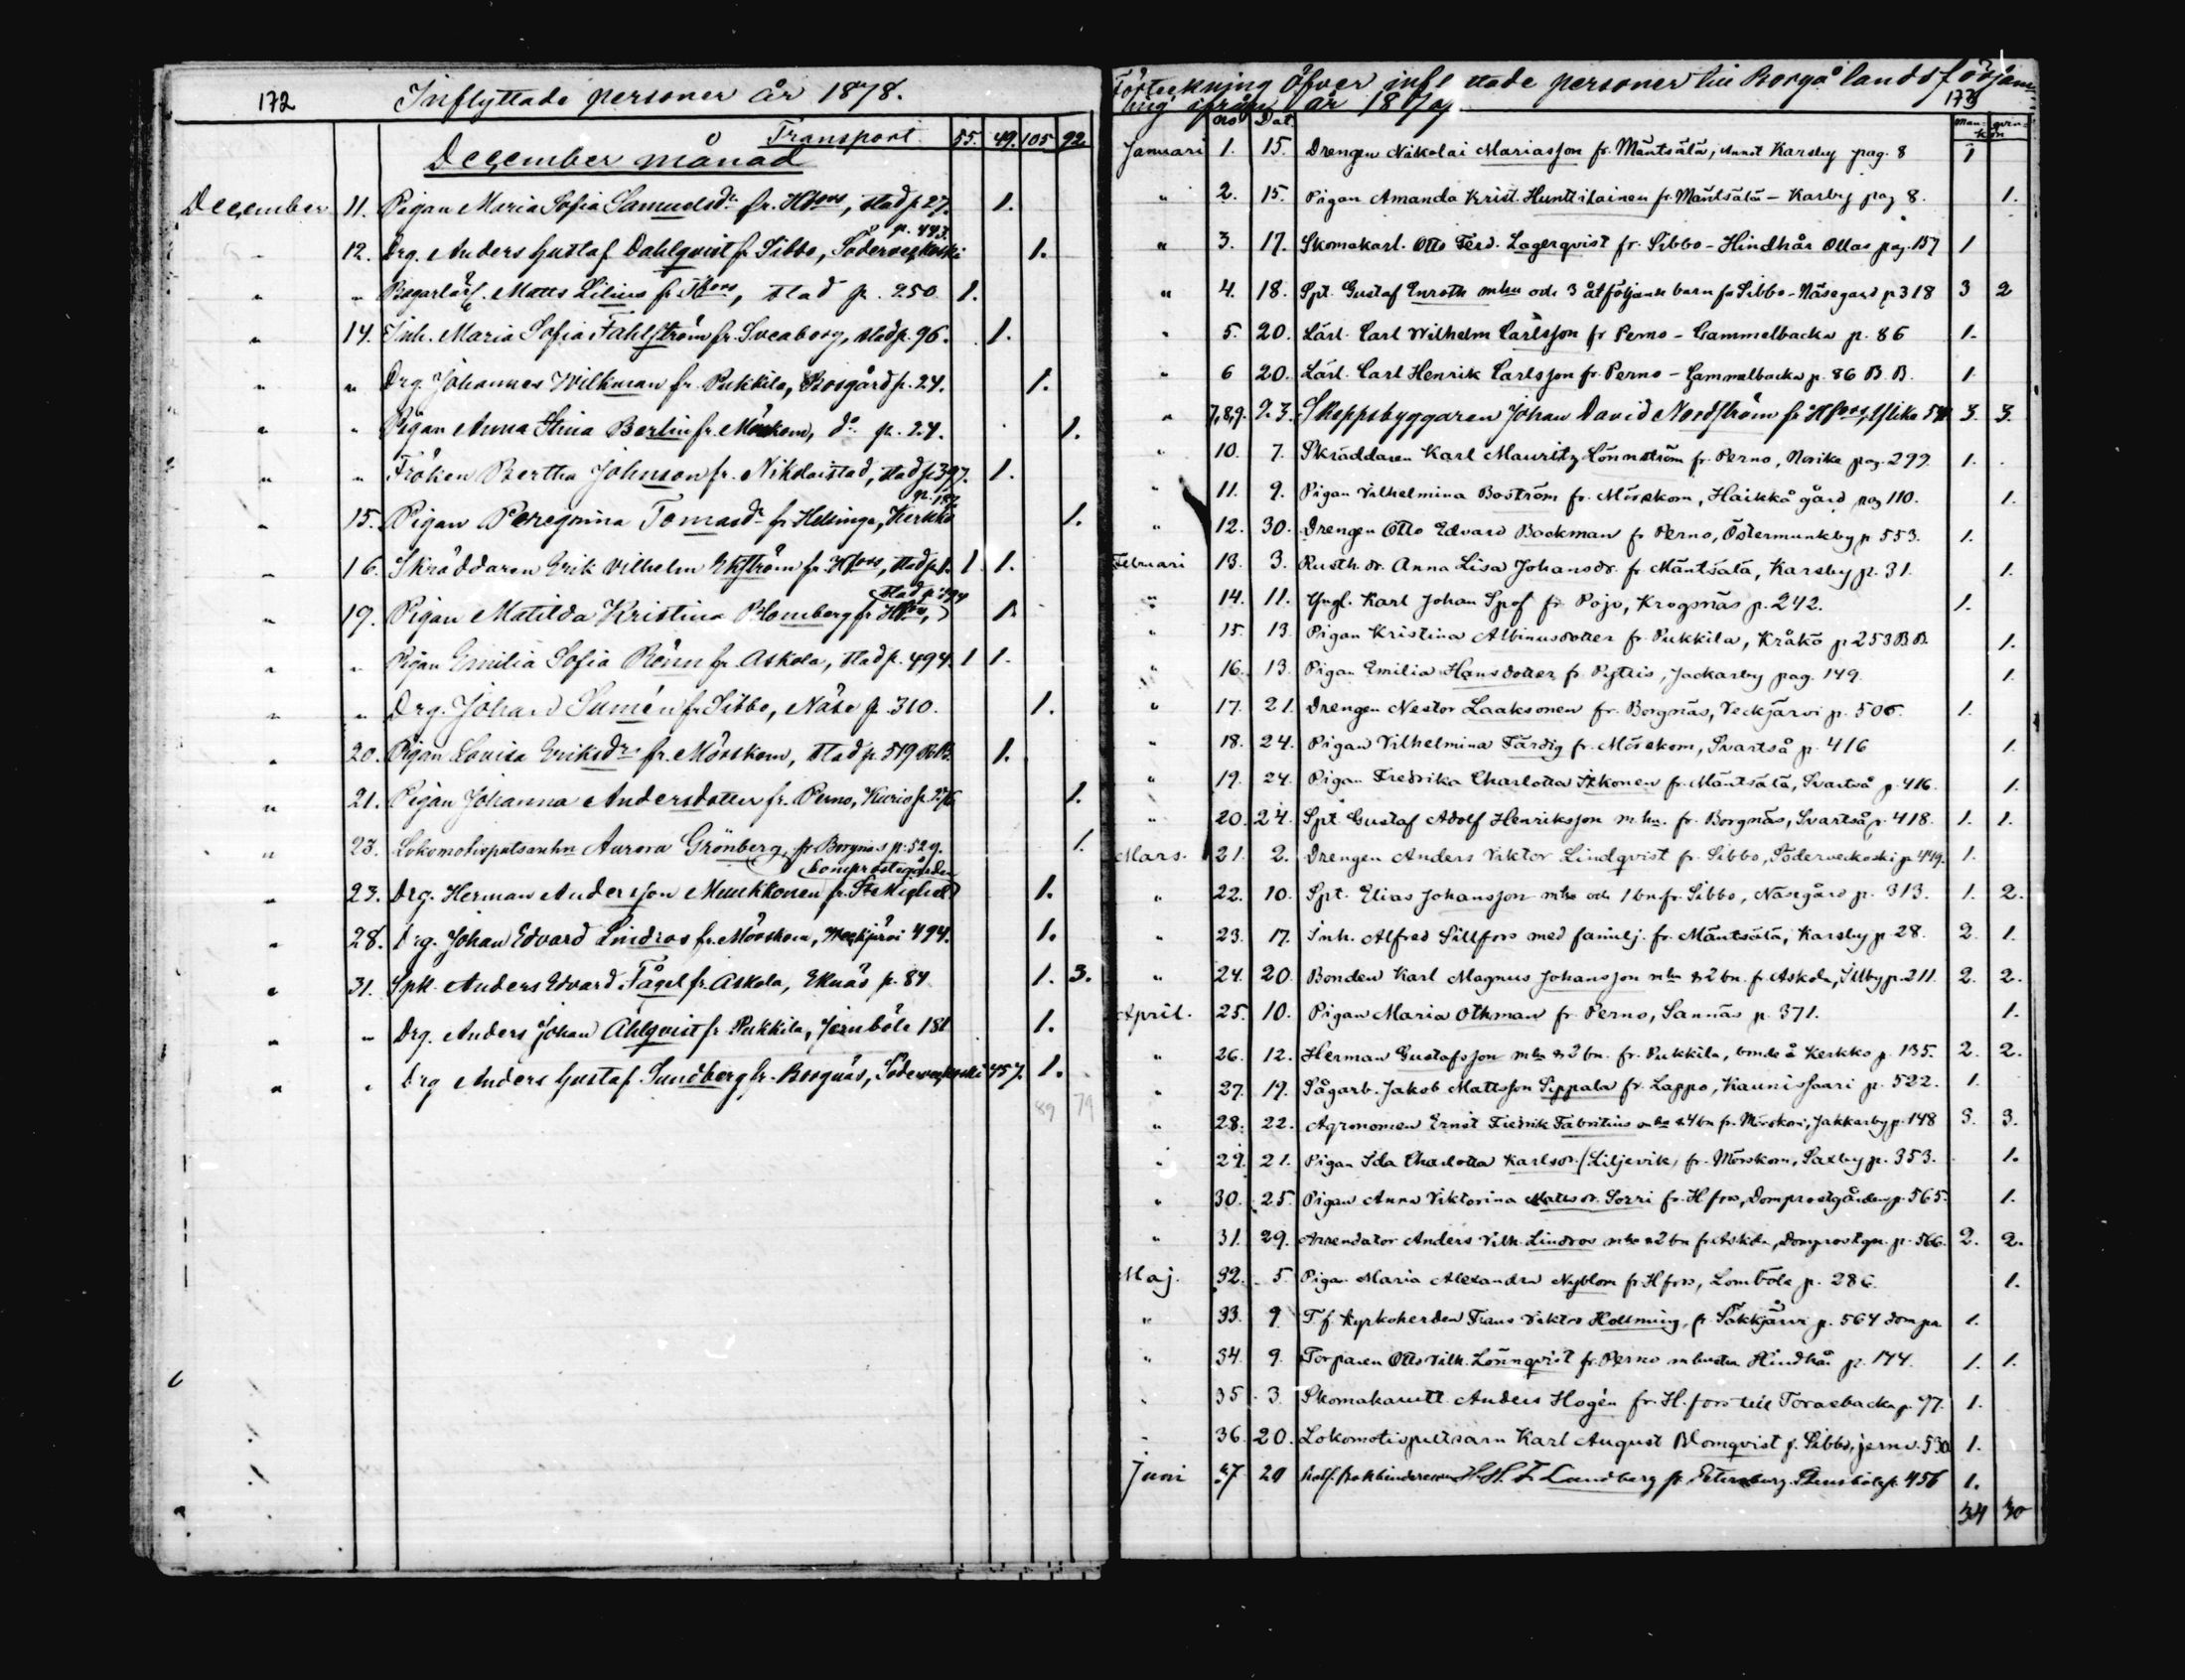 172 Inflyttade personer år 1878.
Transport. 55. 49. 105 92.
December månad
December 11. Pigan Maria Sofia Samuelsdr fr. Hfors, stad p 27. 1.
p. 443.
" 12. Drg. Anders Gustaf Dahlqvist fr Sibbo, Söderveckoski 1.
" " Bagarlärl. Matts Lilius fr Hfors, stad p. 250 1.
" 14. Inh. Maria Sofia Fahlström fr. Sveaborg, stad p. 96. 1.
" " Drg Johannes Wilkman fr. Pukkila, Bosgård p. 24. 1.
" " Pigan Anna Stina Berlin fr. Mörskom, do p. 24. 1.
" " Fröken Bertha Johnson fr. Nikolaistad, stad p 397. 1.
" 15. Pigan Peregrina Tomasdr fr Helsinge, Kerkko 1.
" 16. Skräddaren Erik Vilhelm Ekström fr. Hfors, stad p. 1. 1 1.
stad p. 494
" 19. Pigan Matilda Kristina Blomberg fr Hfors, 1.
" " Pigan Emilia Sofia Rönn fr. Askola, stad p. 494. 1 1.
" " Drg. Johan Sumén fr Sibbo, Näse p. 310. 1.
" 20. Pigan Lovisa Eriksdr fr. Mörskom, stad p. 519 BB. 1.
" 21. Pigan Johanna Andersdotter fr. Perno, Kurio p. 1.
" 23. Lokomotivputsarehn Aurora Grönberg, fr Borgnäs p. 529. 1.
Domprostegården
" 23. Drg. Herman Andersson Munkkonen fr. St Michel 1.
" 28. Drg. Johan Edvard Lindros fr. Mörskom, Veckjärvi 494. 1.
" 31. Spk. Anders Edvard Fågel fr. Askola, Eknäs p. 84 1. 3.
" " Drg. Anders Johan Ahlqvist fr. Pukkila, Jernböle 181 1.
" " Drg Anders Gustaf Sundberg fr. Borgnäs, Söderveckoski 457. 1.
89 79
Förteckning öfver inflyttade personer till Borgå landsförsam-
ling ifrån år 1879 173
no Dat. Man- qvin- kön
Januari 1. 15. Drengen Nikolai Mariasson fr. Mäntsälä, Karsby pag. 8 1
" 2. 15. Pigan Amanda Krist. Hunttilainen fr. Mäntsälä - Karby pag 8. 1.
" 3. 17. Skomakarl. Otto Ferd. Lagerqvist fr. Sibbo - Hindhår Ollas pag. 157 1
" 4. 18. Spt. Gustaf Enroth mhu och 3 åtföljande barn fr Sibbo - Näsegård p 318 3 2
" 5. 20. Lärl. Carl Wilhelm Carlsson fr Perno - Gammelbacka p. 86 1.
" 6 20. Lärl. Carl Henrik Carlsson fr. Perno - Gammelbacka p. 86 B.B. 1.
" 7,8,9. 23. Skeppsbyggaren Johan David Nordström fr Hfors, 3. 3.
" 10. 7. Skräddaren Karl Mauritz Lönnström fr. Perno, Norike pag. 299. 1.
" 11. 9. Pigan Vilhelmina Boström fr. Mörskom, Haikkå gård pag 110. 1.
" 12. 30. Drengen Otto Edvard Backman fr Perno, Östermunkby p 553. 1.
Februari 13. 3. Rusth. dr. Anna Lisa Johansdr. fr. Mäntsälä, Karsby p. 31. 1.
" 14. 11. Yngl. Karl Johan Spof fr Pojo, Krogsnäs p. 242. 1.
" 15. 13 Pigan Kristina Albinusdotter fr. Pukkila, Kråkö p 253 BB 1.
" 16. 13. Pigan Emilia Hansdotter fr. Pyttis, Jackarby pag. 149. 1.
" 17. 21. Drengen Nestor Laaksonen fr. Borgnäs, Veckjärvi p. 506. 1.
" 18. 24. Pigan Vilhelmina Färdig fr. Mörskom, Svartså p. 416 1.
" 19. 24. Pigan Fredrika Charlotta Itkonen fr. Mäntsälä, Svartså p. 416. 1.
" 20. 24. Spt. Gustaf Adolf Henriksson m. hu. fr. Borgnäs, Svartså p. 418. 1. 1.
Mars. 21. 2. Drengen Anders Viktor Lindqvist fr. Sibbo, Söderveckoski p 449. 1.
" 22. 10. Spt. Elias Johansson mhu och 1 bn fr. Sibbo, Näsegård p. 313. 1. 2.
" 23. 17. Inh. Alfred Sillfors med familj. fr. Mäntsälä, Karsby p. 28. 2. 1.
" 24. 20. Bonden Karl Magnus Johansson mhu & 2 bn. fr. Askola, Illby p. 211. 2. 2.
April. 25. 10. Pigan Maria Othman fr Perno, Sannäs p. 371. 1.
" 26. 12. Herman Gustafsson mhu & 2 bn. fr. Pukkila, bmde å Kerkko p. 135. 2. 2.
" 27. 19. Sågarb. Jakob Mattsson Sippala fr. Lappo, Kaunissaari p. 522. 1.
" 28. 22. Agronomen Ernst Fredrik Fabritius m hu & 4 bn fr. Mörskom, Jakkarby p. 148 3. 3.
" 29. 21. Pigan Ida Charlotta Karlsdr. (Liljevik) fr. Mörskom, Saxby p. 353. 1.
" 30. 25. Pigan Anna Viktorina Mattsdr. Sorri fr. Hfors, Domprostgården p. 565. 1.
" 31. 29. Arrendator Anders Vilh. Lindros mhu & 2 bn fr Askola, Domprostgn. p. 566. 2. 2.
Maj. 32. 5. Pigan Maria Alexandra Nyblom fr Hfors, Lomböle p. 286. 1.
" 33. 9 T.f. kyrkoherden Frans Viktor Hollming, fr. Säkkjärvi p. 564 dompr. 1.
" 34. 9. Torparen Otto Vilh. Lönnqvist fr. Perno m hustru Hindhår p. 174. 1. 1.
" 35. 3. Skomakar Anders Hogén fr. H.fors till Torasbacka p. 97. 1.
" 36. 20. Lokomotivputsarn Karl August Blomqvist fr. Sibbo, jernv. 530 1.
Juni 37 29 H. H. F. Landberg fr. Petersburg p. 456 1.
34 30